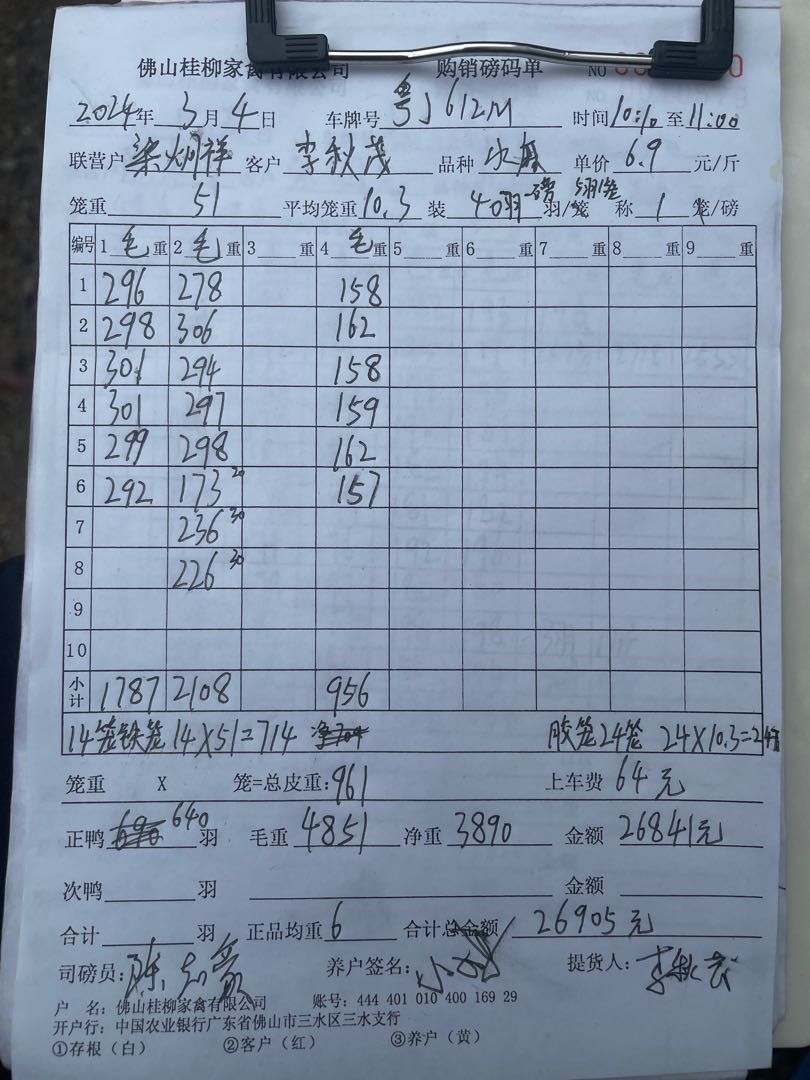 佛山桂柳家禽有限公司 购销磅码单 NO 0
2024年 3月 4日 车牌号 粤J612M 时间 10:10至11:00
联营户 梁炳祥 客户 李秋茂 品种 单价 6.9 元/斤
笼重 51 平均笼重 10.3 装 40羽一磅 5羽1笼 羽/笼 称 1 笼/磅
编号 1 毛 重 2 毛 重 3 重 4 毛 重 5 重 6 重 7 重 8 重 9 重
1 296 278 158
2 298 306 162
3 301 294 158
4 301 297 159
5 299 298 162
6 292 173 20 157
7 236 30
8 226 30
9
10
小计 1787 2108 956
14笼铁笼 14X51=714 胶笼24笼 24X10.3=247
笼重 X 笼=总皮重: 961 上车费 64元
正鸭 640 羽 毛重 4851 净重 3890 金额 26841元
次鸭 羽 金额
合计 羽 正品均重 6 合计总金额 26905元
司磅员: 养户签名: 提货人: 李秋茂
户 名: 佛山桂柳家禽有限公司 账号: 444 401 010 400 169 29
开户行: 中国农业银行广东省佛山市三水区三水支行
①存根(白) ②客户(红) ③养户(黄)